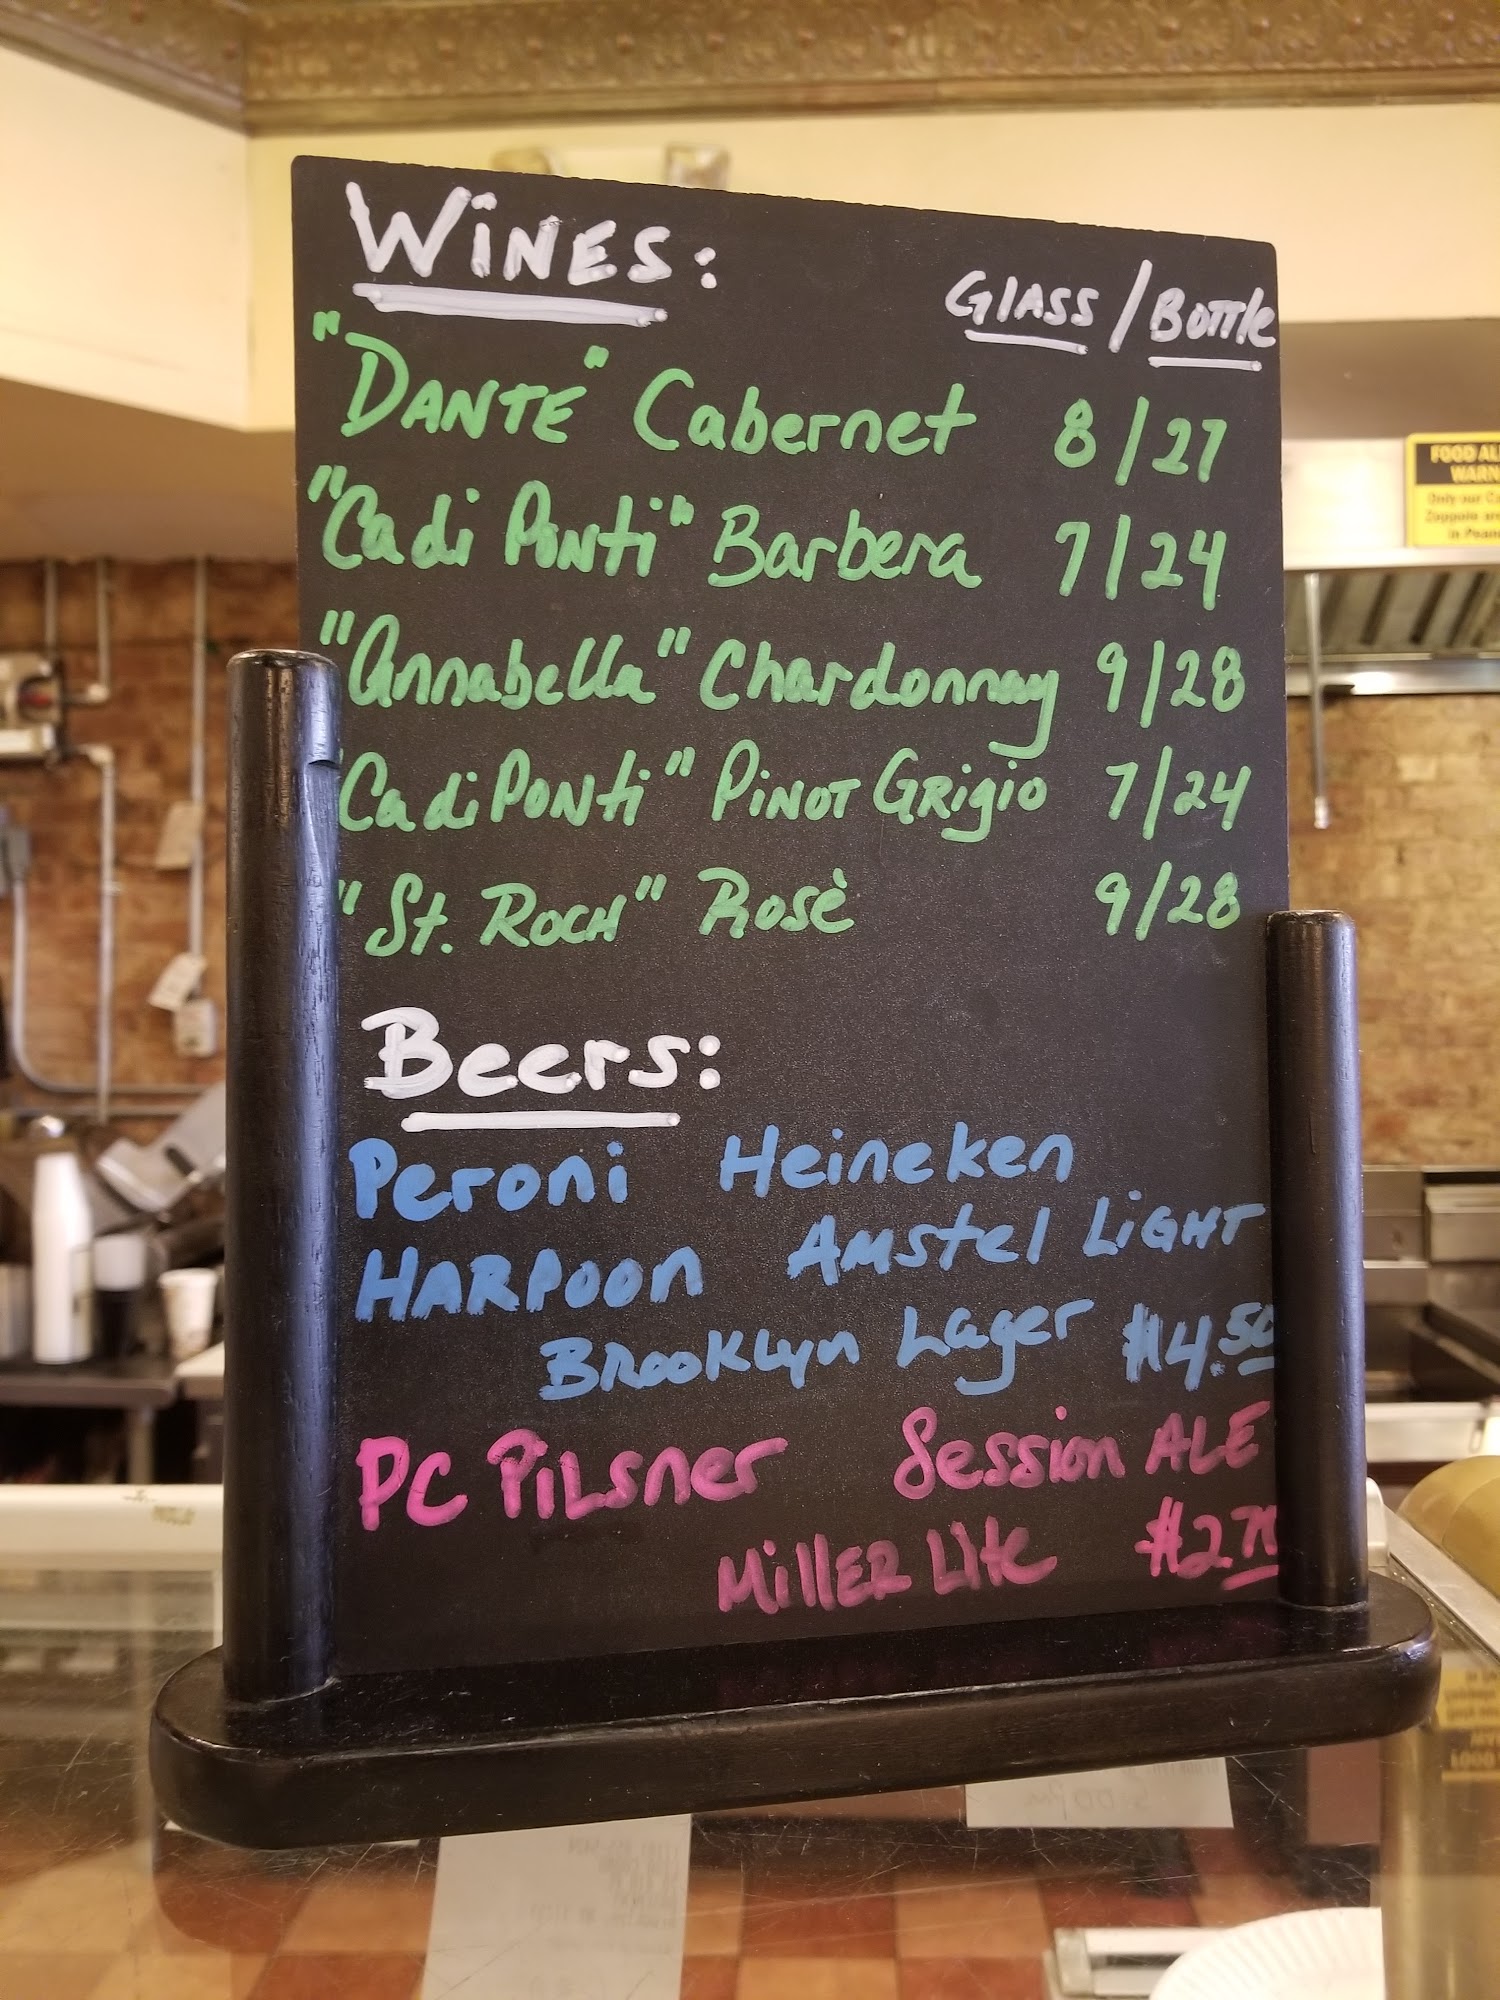 WINES:
GLASS / BOTTLE
"DANTE" Cabernet 8/27
"Ca di Ponti" Barbera 7/24
"Annabella" Chardonnay 9/28
"Ca di PONti" PINOT GRigio 7/24
"St. ROCH" Rosè 9/28
Beers:
Peroni Heineken
HARPOON Amstel LiGHT
Brooklyn Lager $4.50
PC PILsner Session ALE
MillER Lite
FOOD AL
WARN
Only our Ca
Zeppole are
in Pean